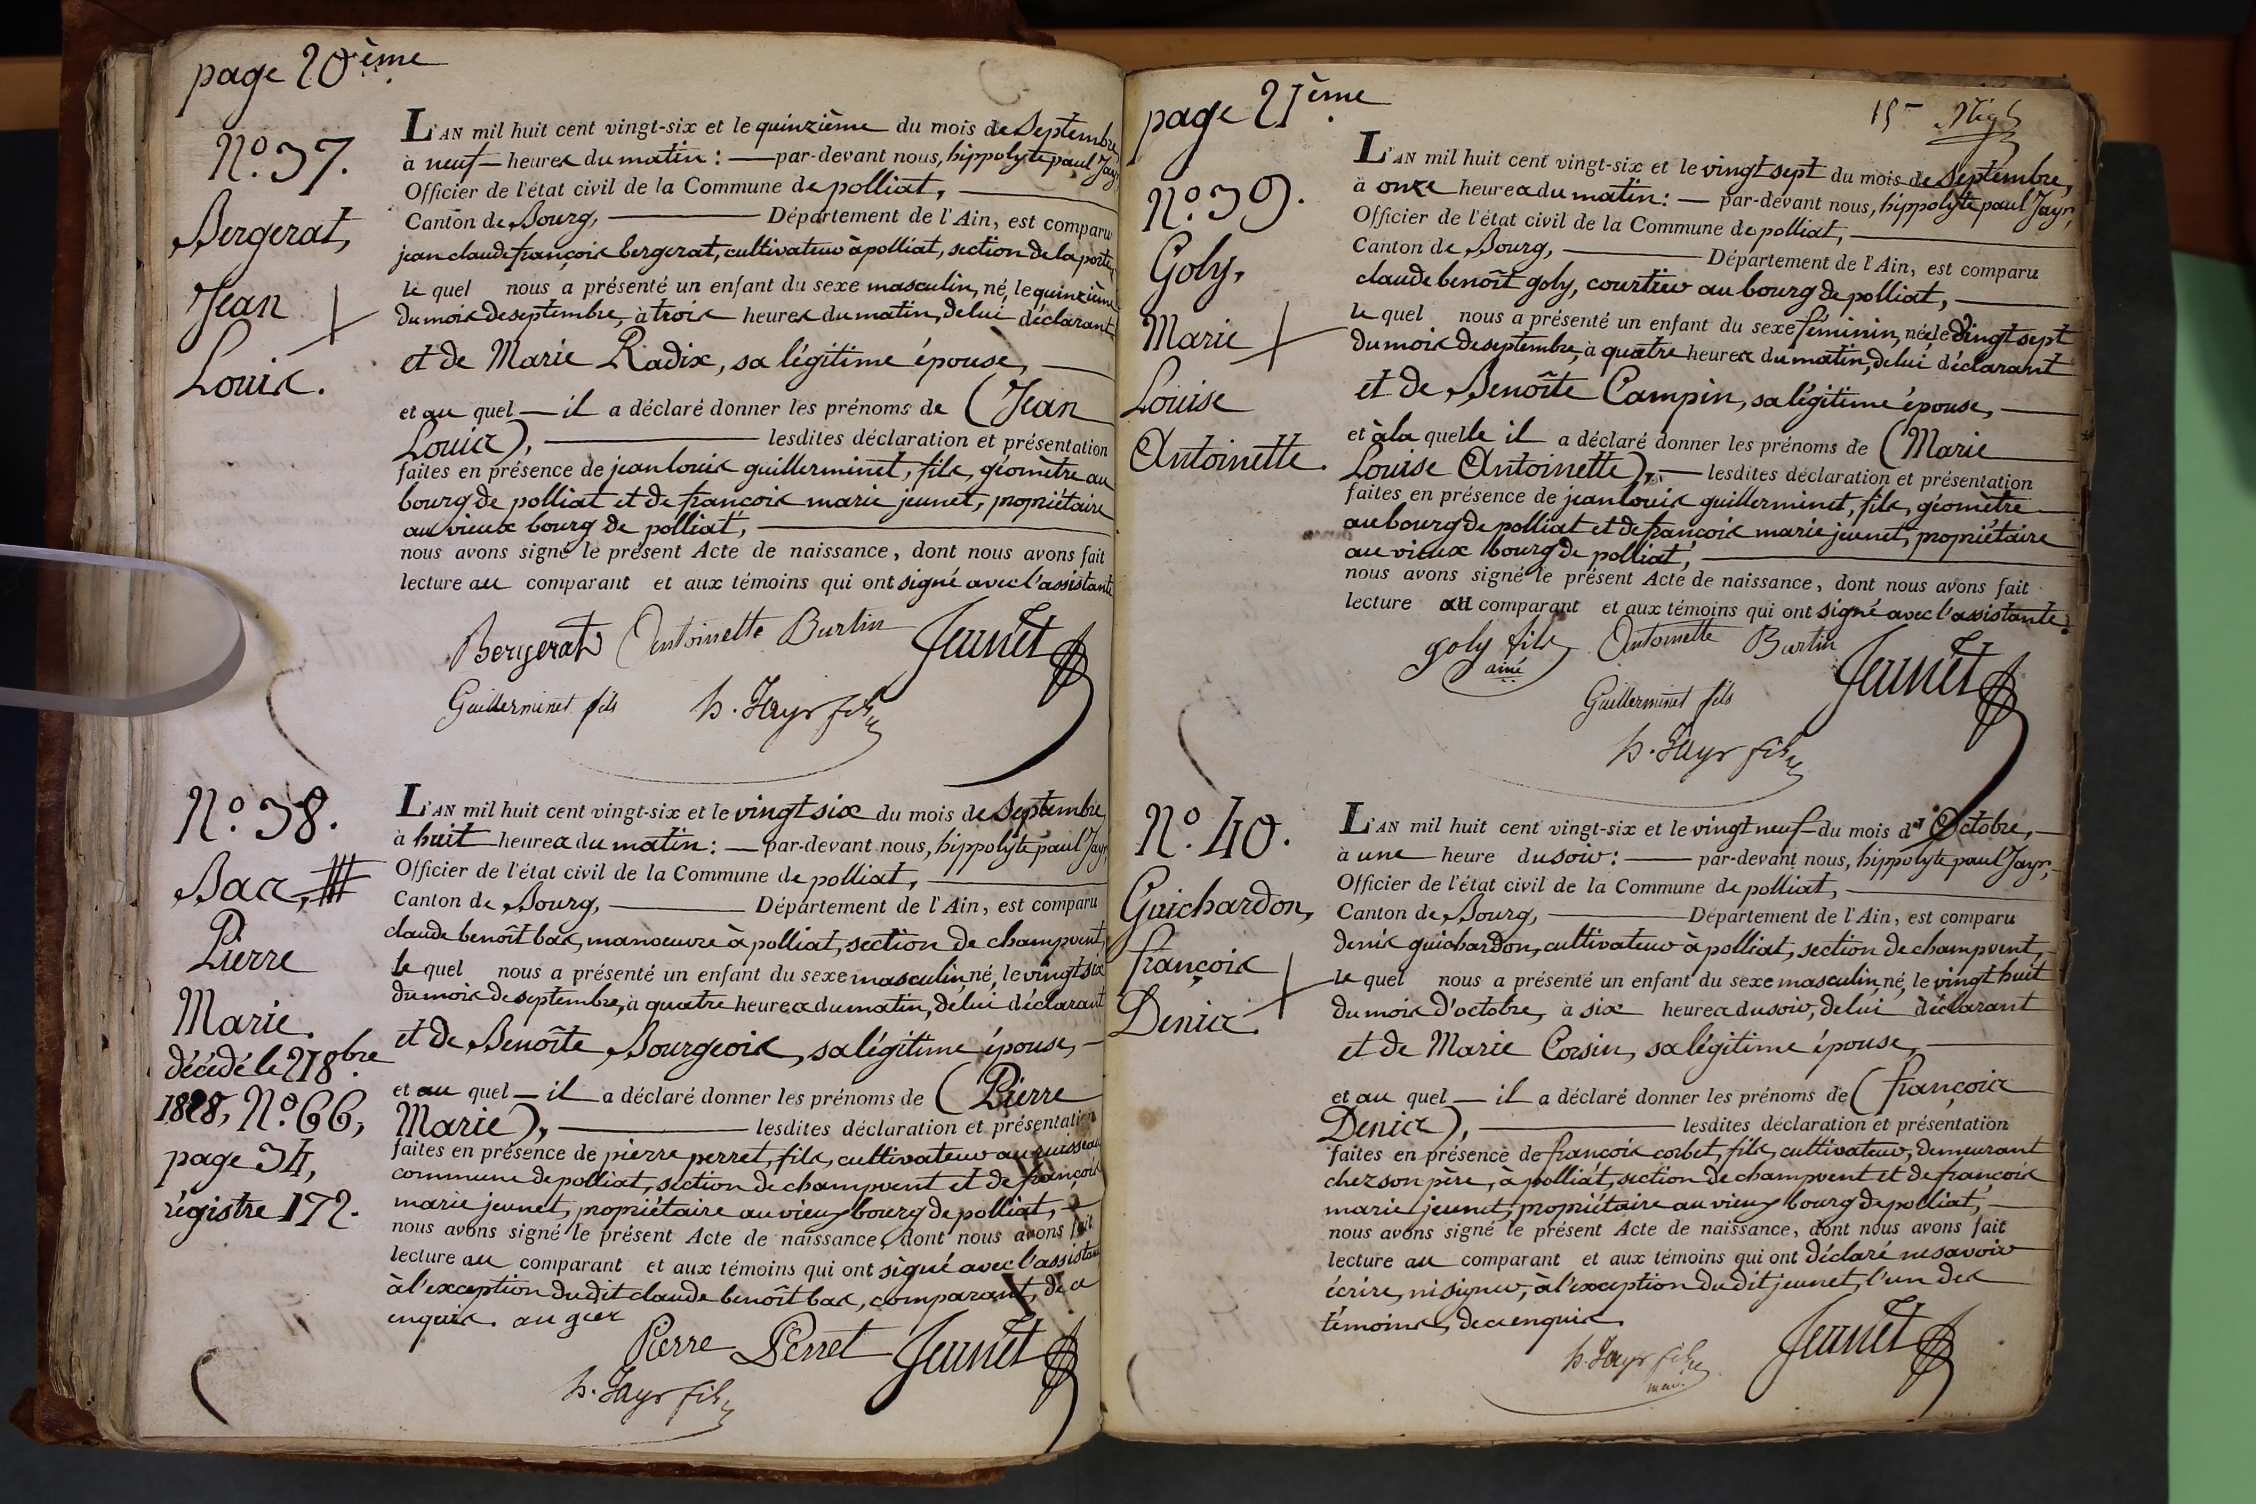 page 20ème
N.o 37.
Bergerat,
Jean
Louis.
L'AN mil huit cent vingt-six et le quinzième du mois de Septembre,
à neuf heures du matin : par-devant nous, hippolyte paul Jayr,
Officier de l'état civil de la Commune de polliat,
Canton de Bourg, Département de l'Ain, est comparu
jean claude françois bergerat, cultivateur à polliat, section de la porte,
le quel nous a présenté un enfant du sexe masculin, né, le quinzième
du mois de septembre, à trois heures du matin, de lui déclarant
et de Marie Radix, sa légitime épouse,
et au quel il a déclaré donner les prénoms de (Jean
Louis), lesdites déclaration et présentation
faites en présence de jean louis guillerminet, fils, géomètre au
bourg de polliat et de françois marie jeunet, propriétaire
au vieux bourg de polliat,
nous avons signé le présent Acte de naissance, dont nous avons fait
lecture au comparant et aux témoins qui ont signé avec l'assistante
Bergerat Antoinette Burtin Jeunet
Guillerminet fils h. Jayr fils
N.o 38.
Bac,
Pierre
Marie.
décédé le 21 8bre
1828, N.o 66,
page 34,
régistre 172.
L'AN mil huit cent vingt-six et le vingt six du mois de Septembre,
à huit heures du matin : par-devant nous, hippolyte paul Jayr,
Officier de l'état civil de la Commune de polliat,
Canton de Bourg, Département de l'Ain, est comparu
claude benoît bac, manoeuvre à polliat, section de champvent,
le quel nous a présenté un enfant du sexe masculin, né, le vingt six
du mois de septembre, à quatre heures du matin, de lui déclarant
et de Benoîte Bourgeois, sa légitime épouse,
et au quel il a déclaré donner les prénoms de (Pierre
Marie), lesdites déclaration et présentation
faites en présence de pierre perret, fils, cultivateur au ruisseau
commune de polliat, section de champvent et de françois
marie jeunet, propriétaire au vieux bourg de polliat,
nous avons signé le présent Acte de naissance, dont nous avons fait
lecture au comparant et aux témoins qui ont signé avec l'assistant
à l'exception dudit claude benoît bac, comparant, de ce
enquis.
Pierre Perret Jeunet
h. Jayr fils
page 21ème
15
N.o 39.
Goly,
Marie
Louise
Antoinette.
L'AN mil huit cent vingt-six et le vingt sept du mois de Septembre,
à onze heures du matin : par-devant nous, hippolyte paul Jayr,
Officier de l'état civil de la Commune de polliat,
Canton de Bourg, Département de l'Ain, est comparu
claude benoît goly, courtier au bourg de polliat,
le quel nous a présenté un enfant du sexe féminin, née, le vingt sept
du mois de septembre, à quatre heures du matin, de lui déclarant
et de Benoîte Campin, sa légitime épouse,
et à la quelle il a déclaré donner les prénoms de (Marie
Louise Antoinette), lesdites déclaration et présentation
faites en présence de jean louis guillerminet, fils, géomètre
au bourg de polliat et de françois marie jeunet, propriétaire
au vieux bourg de polliat,
nous avons signé le présent Acte de naissance, dont nous avons fait
lecture au comparant et aux témoins qui ont signé avec l'assistante.
goly fils Antoinette Burtin Jeunet
ainé
Guillerminet fils
h. Jayr fils
N.o 40.
Guichardon,
françois
Denis.
L'AN mil huit cent vingt-six et le vingt neuf du mois d'Octobre,
à une heure du soir : par-devant nous, hippolyte paul Jayr,
Officier de l'état civil de la Commune de polliat,
Canton de Bourg, Département de l'Ain, est comparu
denis guichardon, cultivateur à polliat, section de champvent,
le quel nous a présenté un enfant du sexe masculin, né, le vingt huit
du mois d'octobre, à six heures du soir, de lui déclarant
et de Marie Corsin, sa légitime épouse,
et au quel il a déclaré donner les prénoms de (françois
Denis), lesdites déclaration et présentation
faites en présence de françois corbet, fils, cultivateur, demeurant
chez son père, à polliat, section de champvent et de françois
marie jeunet, propriétaire au vieux bourg de polliat,
nous avons signé le présent Acte de naissance, dont nous avons fait
lecture au comparant et aux témoins qui ont déclaré ne savoir
écrire, ni signer, à l'exception dudit jeunet, l'un des
témoins, de ce enquis.
h. Jayr fils Jeunet